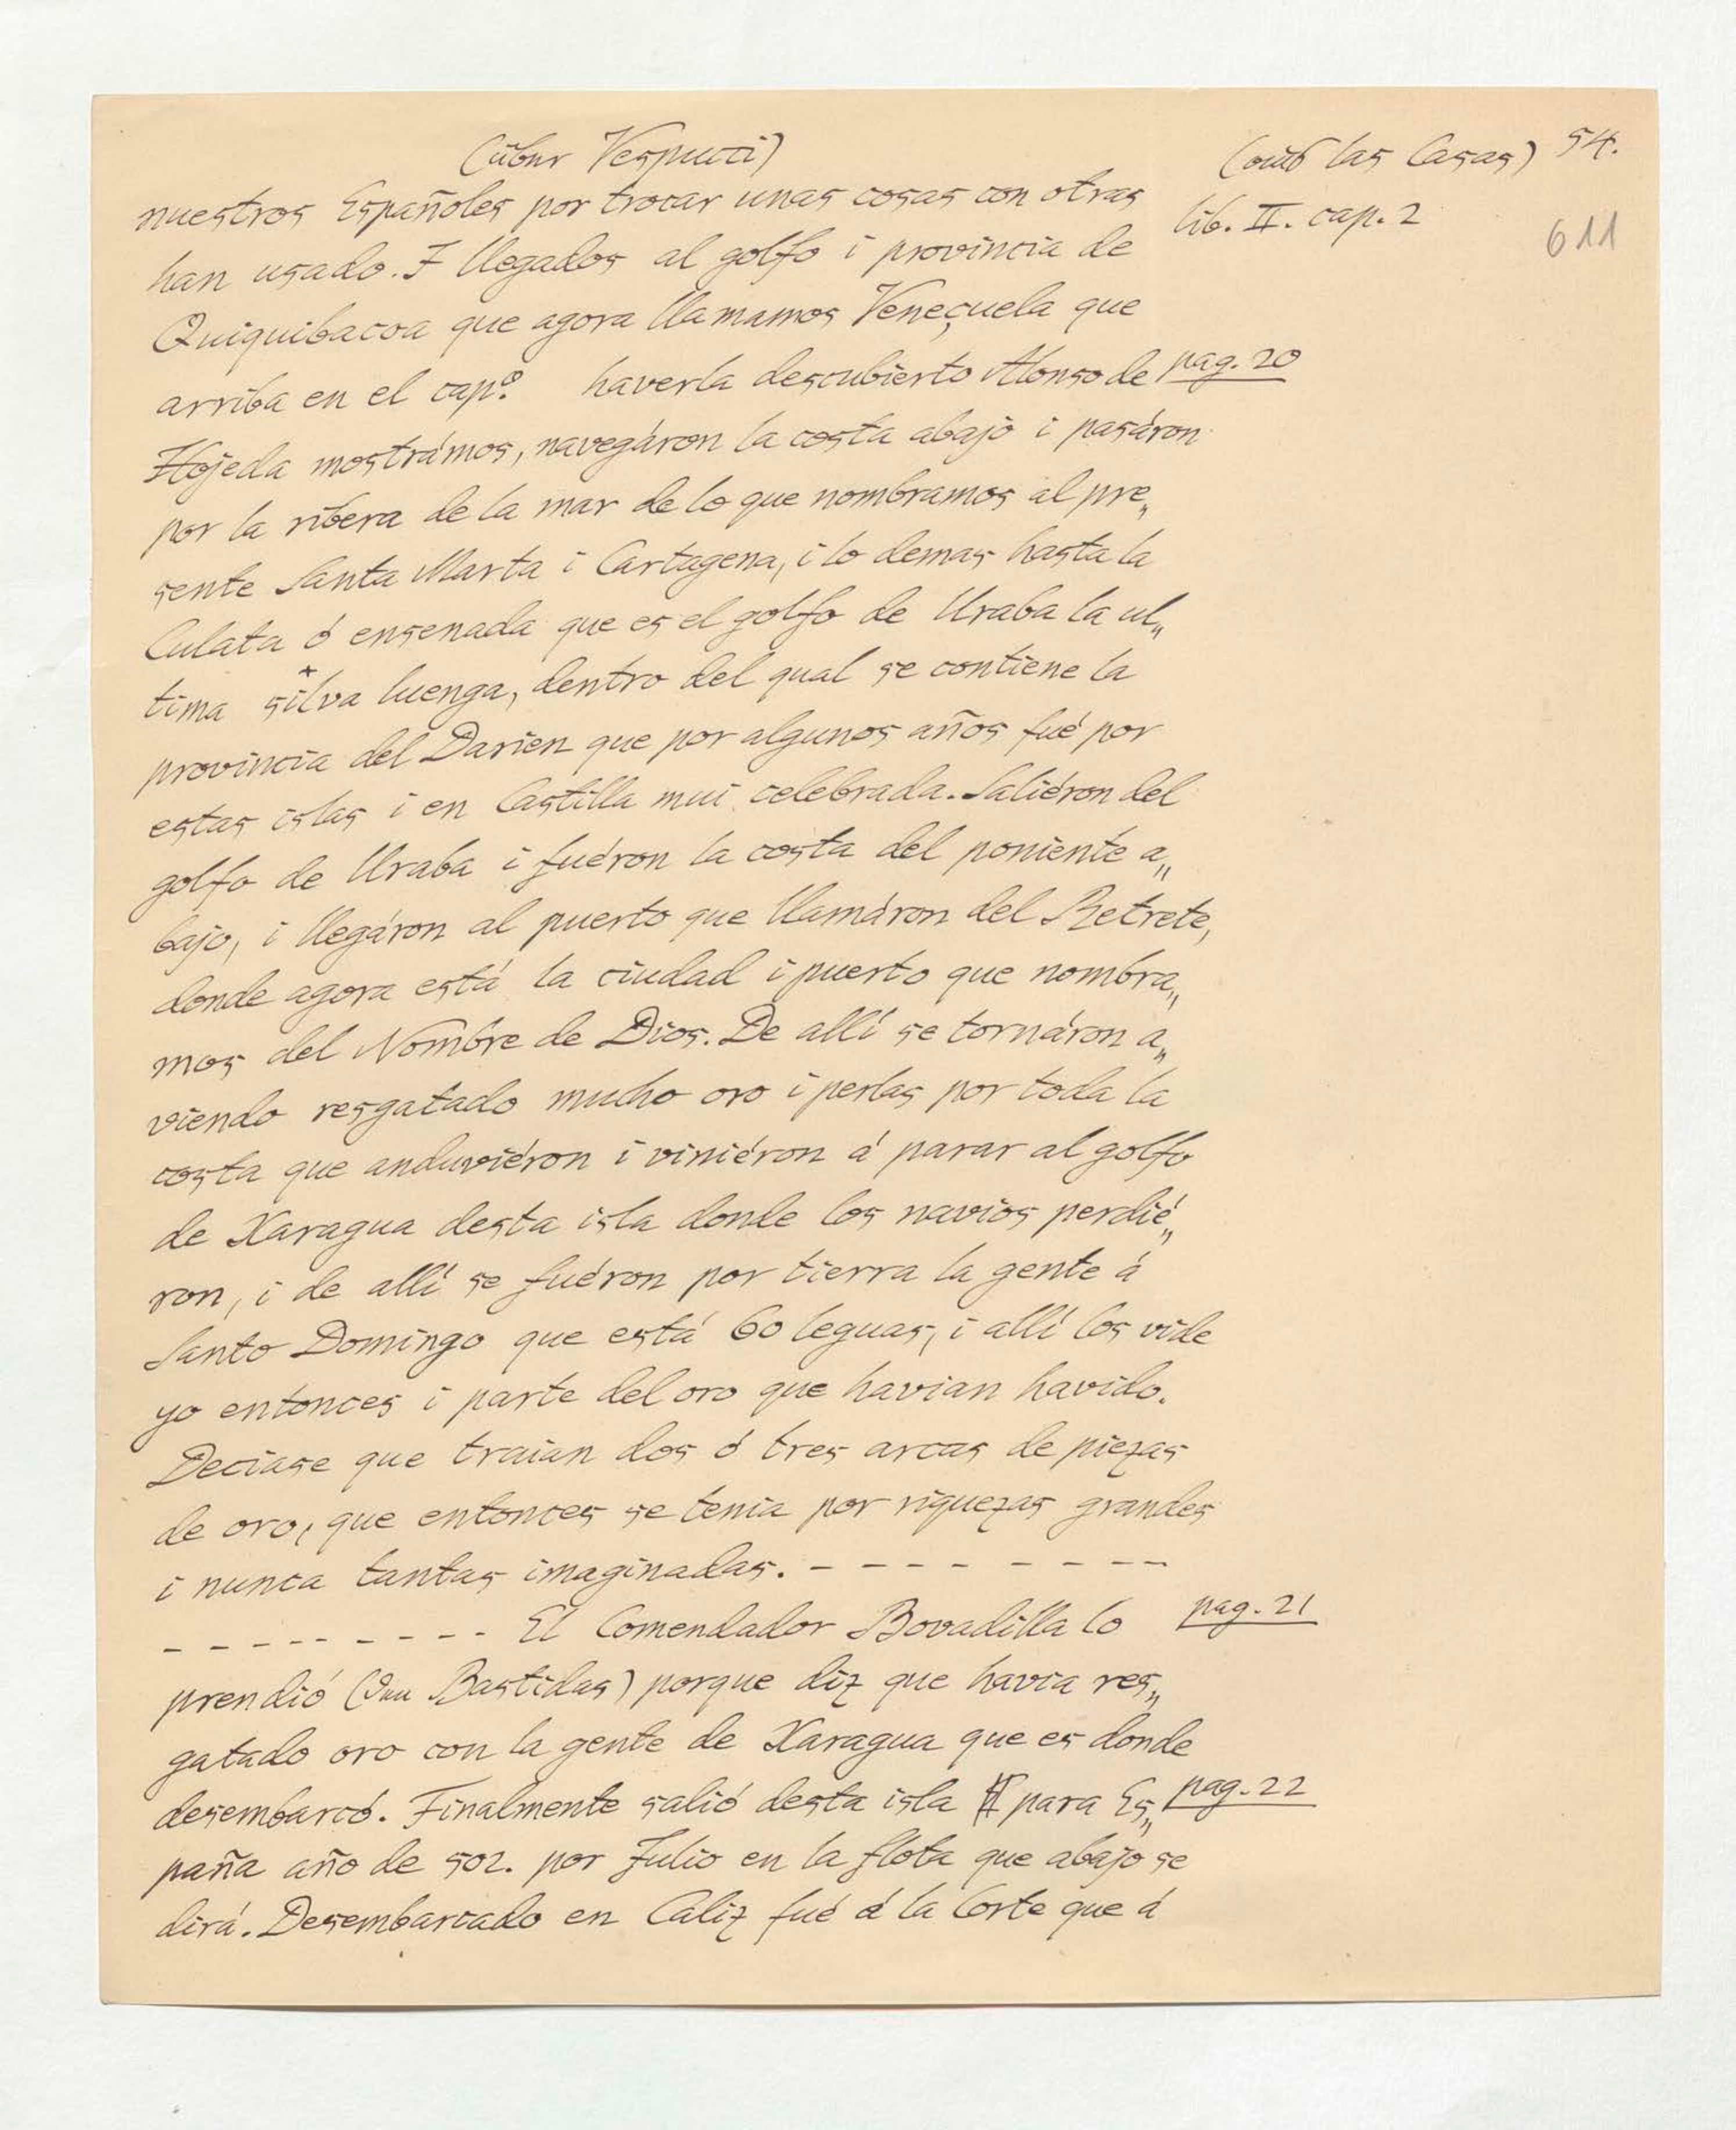 (über Vespucci)
(aus las Casas) 54.
lib. II. cap. 2
611
nuestros Españoles por trocar unas cosas con otras
han usado. I llegados al golfo i provincia de
Quiquibacoa que agora llamamos Veneçuela que
arriba en el cap.º haverla descubierto Alonso de pag. 20
Hojeda mostrámos, navegáron la costa abajo i pasáron
por la ribera de la mar de lo que nombramos al pre„
sente Santa Marta i Cartagena, i lo demas hasta la
Culata ó ensenada que es el golfo de Uraba la ul„
tima silva luenga, dentro del qual se contiene la
provincia del Darien que por algunos años fué por
estas islas i en Castilla mui celebrada. Saliéron del
golfo de Uraba i fuéron la costa del poniente a„
bajo, i llegáron al puerto que llamáron del Retrete,
donde agora está la ciudad i puerto que nombra„
mos del Nombre de Dios. De allí se tornáron a„
viendo resgatado mucho oro i perlas por toda la
costa que anduviéron i viniéron á parar al golfo
de Xaragua desta isla donde los navios perdié„
ron, i de allí se fuéron por tierra la gente á
Santo Domingo que está 60 leguas, i allí los vide
yo entonces i parte del oro que havian havido.
Deciase que traian dos ó tres arcas de piezas
de oro, que entonces se tenia por riquezas grandes
i nunca tantas imaginadas. - - - - - - - -
- - - - - - - - - El Comendador Bovadilla lo pag. 21
prendió ( Bastidas) porque diz que havia res„
gatado oro con la gente de Xaragua que es donde
desembarcó. Finalmente salió desta isla para Es„ pag. 22
paña año de 502. por Julio en la flota que abajo se
dirá. Desembarcado en Caliz fué á la Corte que á